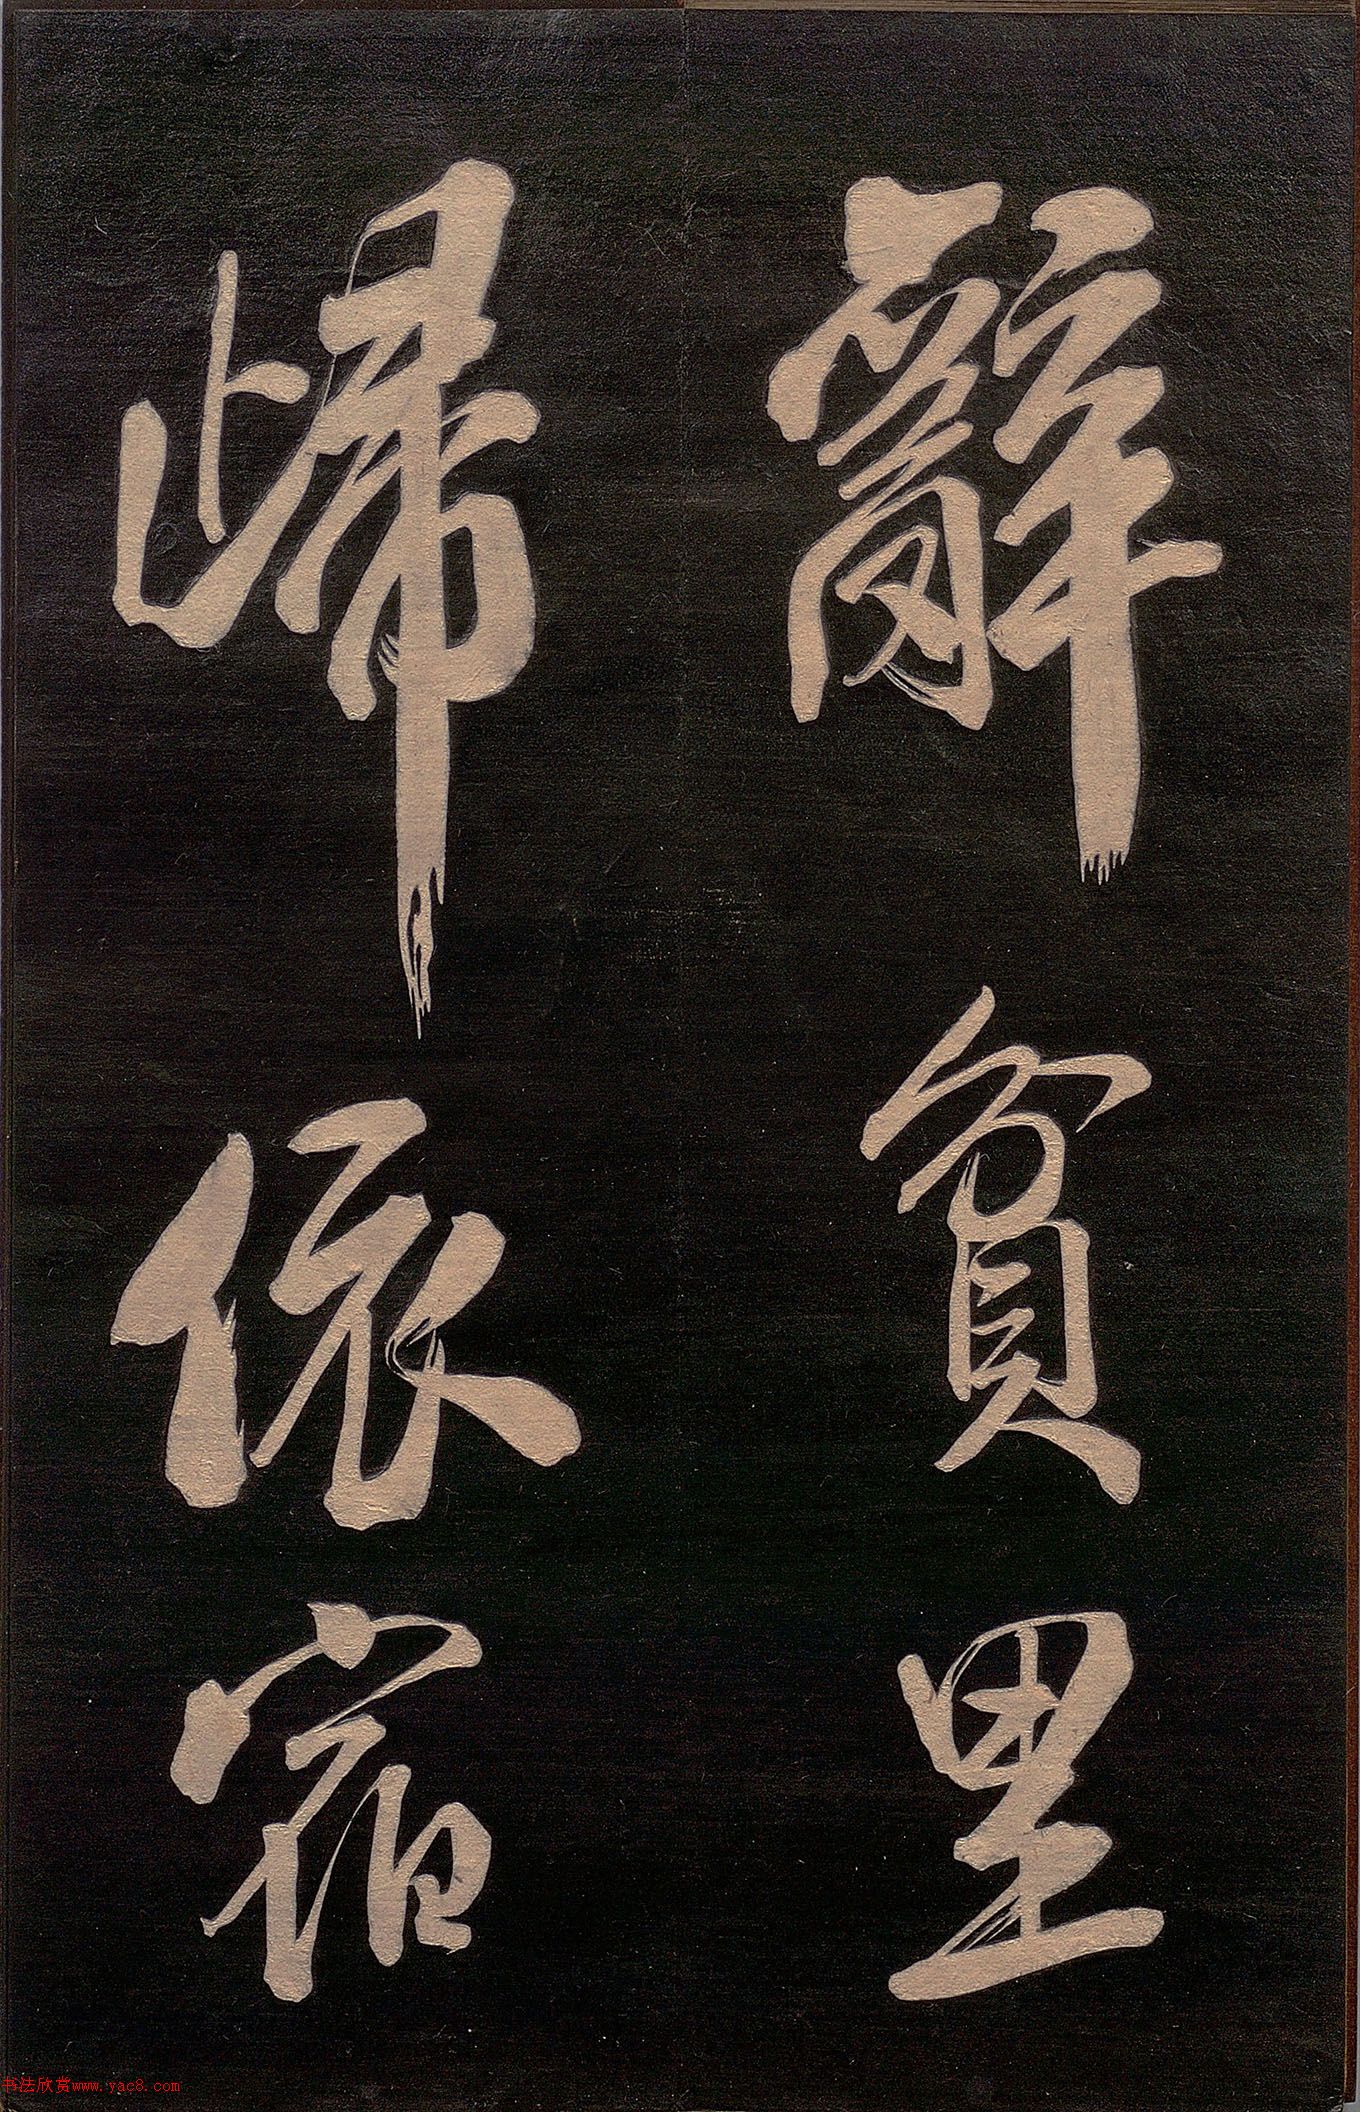 辭貧里
歸依宿
书法欣赏www.yac8.com